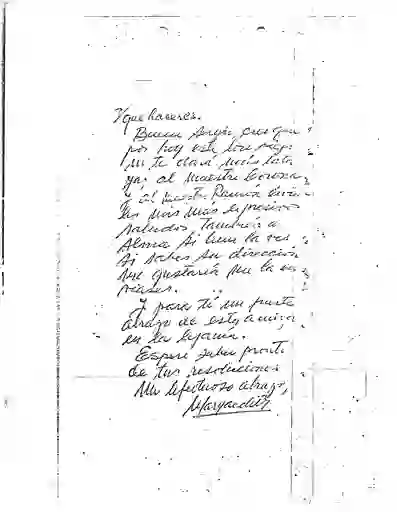 que hacerer.
Bueno Sergio, creo que
por hoy esta
no te daré más lata
ya. al maestro
y al maestro Ramón
les mis más expresivos
saludos, también a
Alma si bien la ves
si sabes su dirección
me gustaría que la
Y para tí un fuerte
abrazo de esta amiga
en la lejanía.
Espero saber pronto
de tus resoluciones
Un afectuoso abrazo,